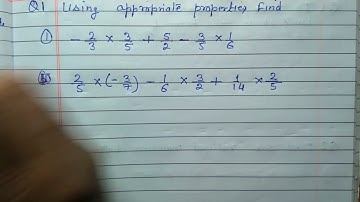 Q1 Using appropriate properties find
① - 2/3 × 3/5 + 5/2 - 3/5 × 1/6
2/5 × (- 3/7) - 1/6 × 3/2 + 1/14 × 2/5